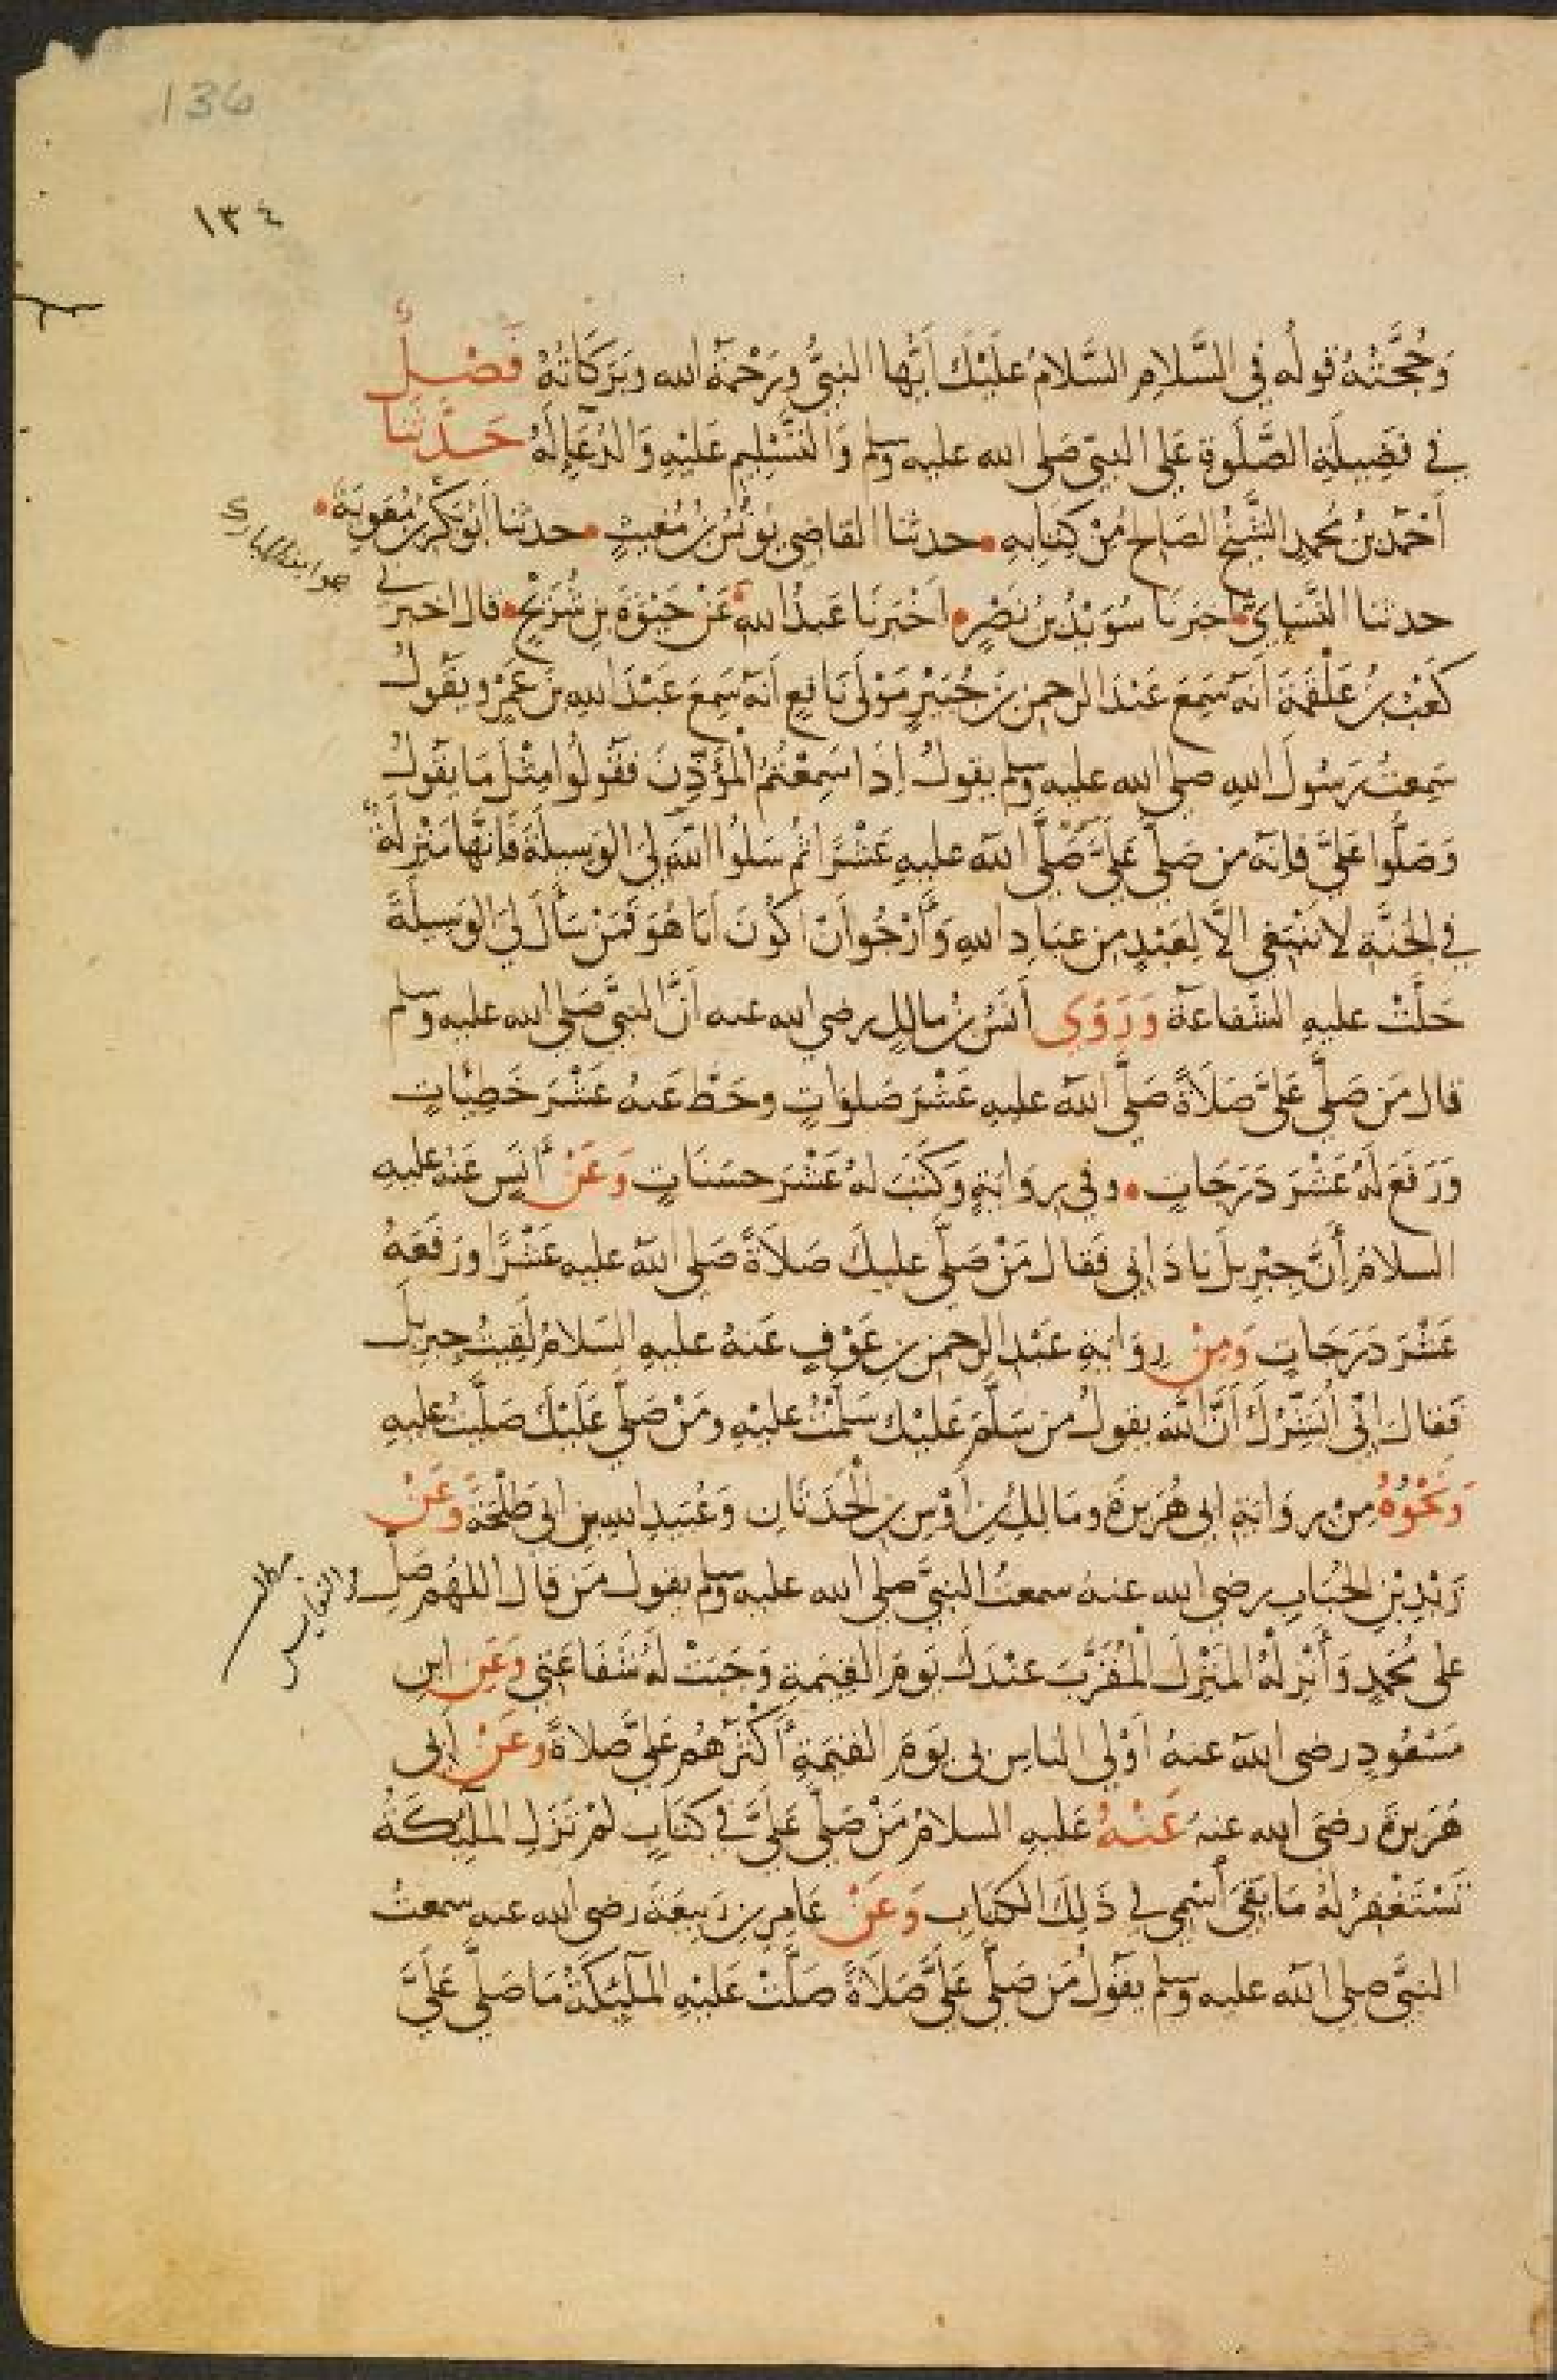 136
١٣٤
وَحُجَّتُهُ قولُه في السَّلامِ السَّلامُ علَيْكَ أيُّها النبيُّ ورَحْمَةُ الله وبَرَكَاتُهُ فَصْلٌ
في فَضِيلَةِ الصَّلوةِ عَلى النبيّ صَلى الله عليه وسلم وَالتَّسْلِيمِ عَلَيْهِ وَالدُّعَاءِ لَهُ حَدَّثَنَا
أَحْمَدُ بنُ مُحمدٍ الشَّيْخُ الصَالحُ مِنْ كِتَابِهِ • حدثنا القاضِي يُونُسُ بنُ مُغِيثٍ • حدثنا أبُو بَكْرِ بنُ مُعوِيَةَ •
حدثنا النَّسَائِيُّ • اخبَرَنا سُوَيْدُ بنُ نَصْرٍ • اَخْبَرَنَا عَبدُ الله • عَنْ حَيْوَةَ بنِ شُرَيْحٍ • قال اخبرَني
كَعْبُ بنُ عَلْقَمَةَ أنَّه سَمِعَ عَبْدَ الرحمنِ بنَ جُبَيْرٍ مَوْلَى نَافِعٍ أنَّه سَمِعَ عَبْدَ اللهِ بنَ عَمْرٍو يَقُولُ
سَمِعتُ رَسُولَ اللهِ صلى الله عليه وسلم يقولُ إِذَا سَمِعْتُمُ المُؤَذِّنَ فَقُولُوا مِثْلَ مَا يَقُولُ
وَصَلُّوا عَلَيَّ فإنّه من صَلّى عَلَيَّ صَلَّى اللّه عليهِ عَشْرًا ثم سَلُوا اللهَ لِيَ الوَسِيلَةَ فَإنَّها مَنْزِلَةٌ
في الجَنَّةِ لا تَنْبَغِي إلَّا لِعَبْدٍ مِن عِبَادِ اللهِ وَأَرْجُو أَنْ اكُونَ أنَا هُوَ فَمَنْ سَأَلَ لِيَ الوَسِيلَةَ
حَلَّتْ عليهِ الشّفاعةُ وَرَوَى أنَسُ بنُ مالكٍ رضي الله عنه أنَّ النبيَّ صَلى الله عليه وسلم
قال مَن صَلَّى عَلَيَّ صَلَاةً صَلَّى اللهُ عليهِ عَشْرَ صَلَوَاتٍ وحَطَّ عَنهُ عَشْرَ خَطِيئاتٍ
وَرَفَعَ لَهُ عَشْرَ دَرَجَاتٍ • وفي رِوَايَةٍ وَكَتَبَ لهُ عَشْرَ حسَنَاتٍ وَعَنْ أنَسٍ عَنهُ عليهِ
السلامُ أنَّ جِبْرِيلَ نادَانِي فَقال مَنْ صَلّى عليكَ صَلَاةً صَلى اللهُ عليه عَشْرًا ورَفَعَهُ
عَشْرَ دَرَجَاتٍ وَمِنْ رِوَايةِ عَبْدِ الرحمنِ بنِ عَوْفٍ عَنهُ عليهِ السَلامُ لَقِيتُ جِبرِيلَ
فَقالَ اِنّي أُبَشِّرُكَ أنَّ اللهَ يقولُ من سَلَّمَ عَلَيْكَ سَلَّمْتُ عليْهِ ومَنْ صَلَّى عَلَيْكَ صَلَّيْتُ عليهِ
وَنَحْوُهُ مِنْ رِوَايَةِ ابِي هُرَيرَةَ ومَالِكِ بنِ أوْسِ بنِ الحَدَثَانِ وَعُبَيدِ اللهِ بنِ ابي طَلْحَةَ وَعَنْ
زَيْدِ بْنِ الحُبَابِ رضي الله عنهُ سمعتُ النبيَّ صلى الله عليه وسلم يقول مَن قال اللهُمَّ صَلِّ
على مُحمدٍ وَأَنْزِلْهُ المَنْزِلَ المُقَرَّبَ عنْدَكَ يَوْمَ القِيمَةِ وَجَبَتْ لهُ شَفَاعَتي وَعَنِ ابنِ
مَسْعُودٍ رضي اللهُ عنهُ اَوْلى الناسِ بي يَوْمَ القيمَةِ أَكْثَرُهُم عَلَيَّ صَلاةً وعَنْ أبي
هُرَيرةَ رضيَ الله عنهُ عَنْهُ عَليهِ السلامُ مَنْ صَلَّى عَلَيَّ في كتَابٍ لَمْ تَزَلِ المَلَئِكَةُ
تَسْتَغْفِرُ لهُ مَا بَقِيَ أسْمي في ذَلِكَ الكتَابِ وَعَنْ عَامِرِ بنِ رَبِيعَةَ رضي الله عنه سمعتُ
النبيَّ صلى اللهُ عليه وسلم يَقُولُ مَن صَلَّى عَلَيَّ صَلَاةً صَلَّتْ عَلَيْهِ المَلَئِكَةُ مَا صَلَّى عَلَيَّ